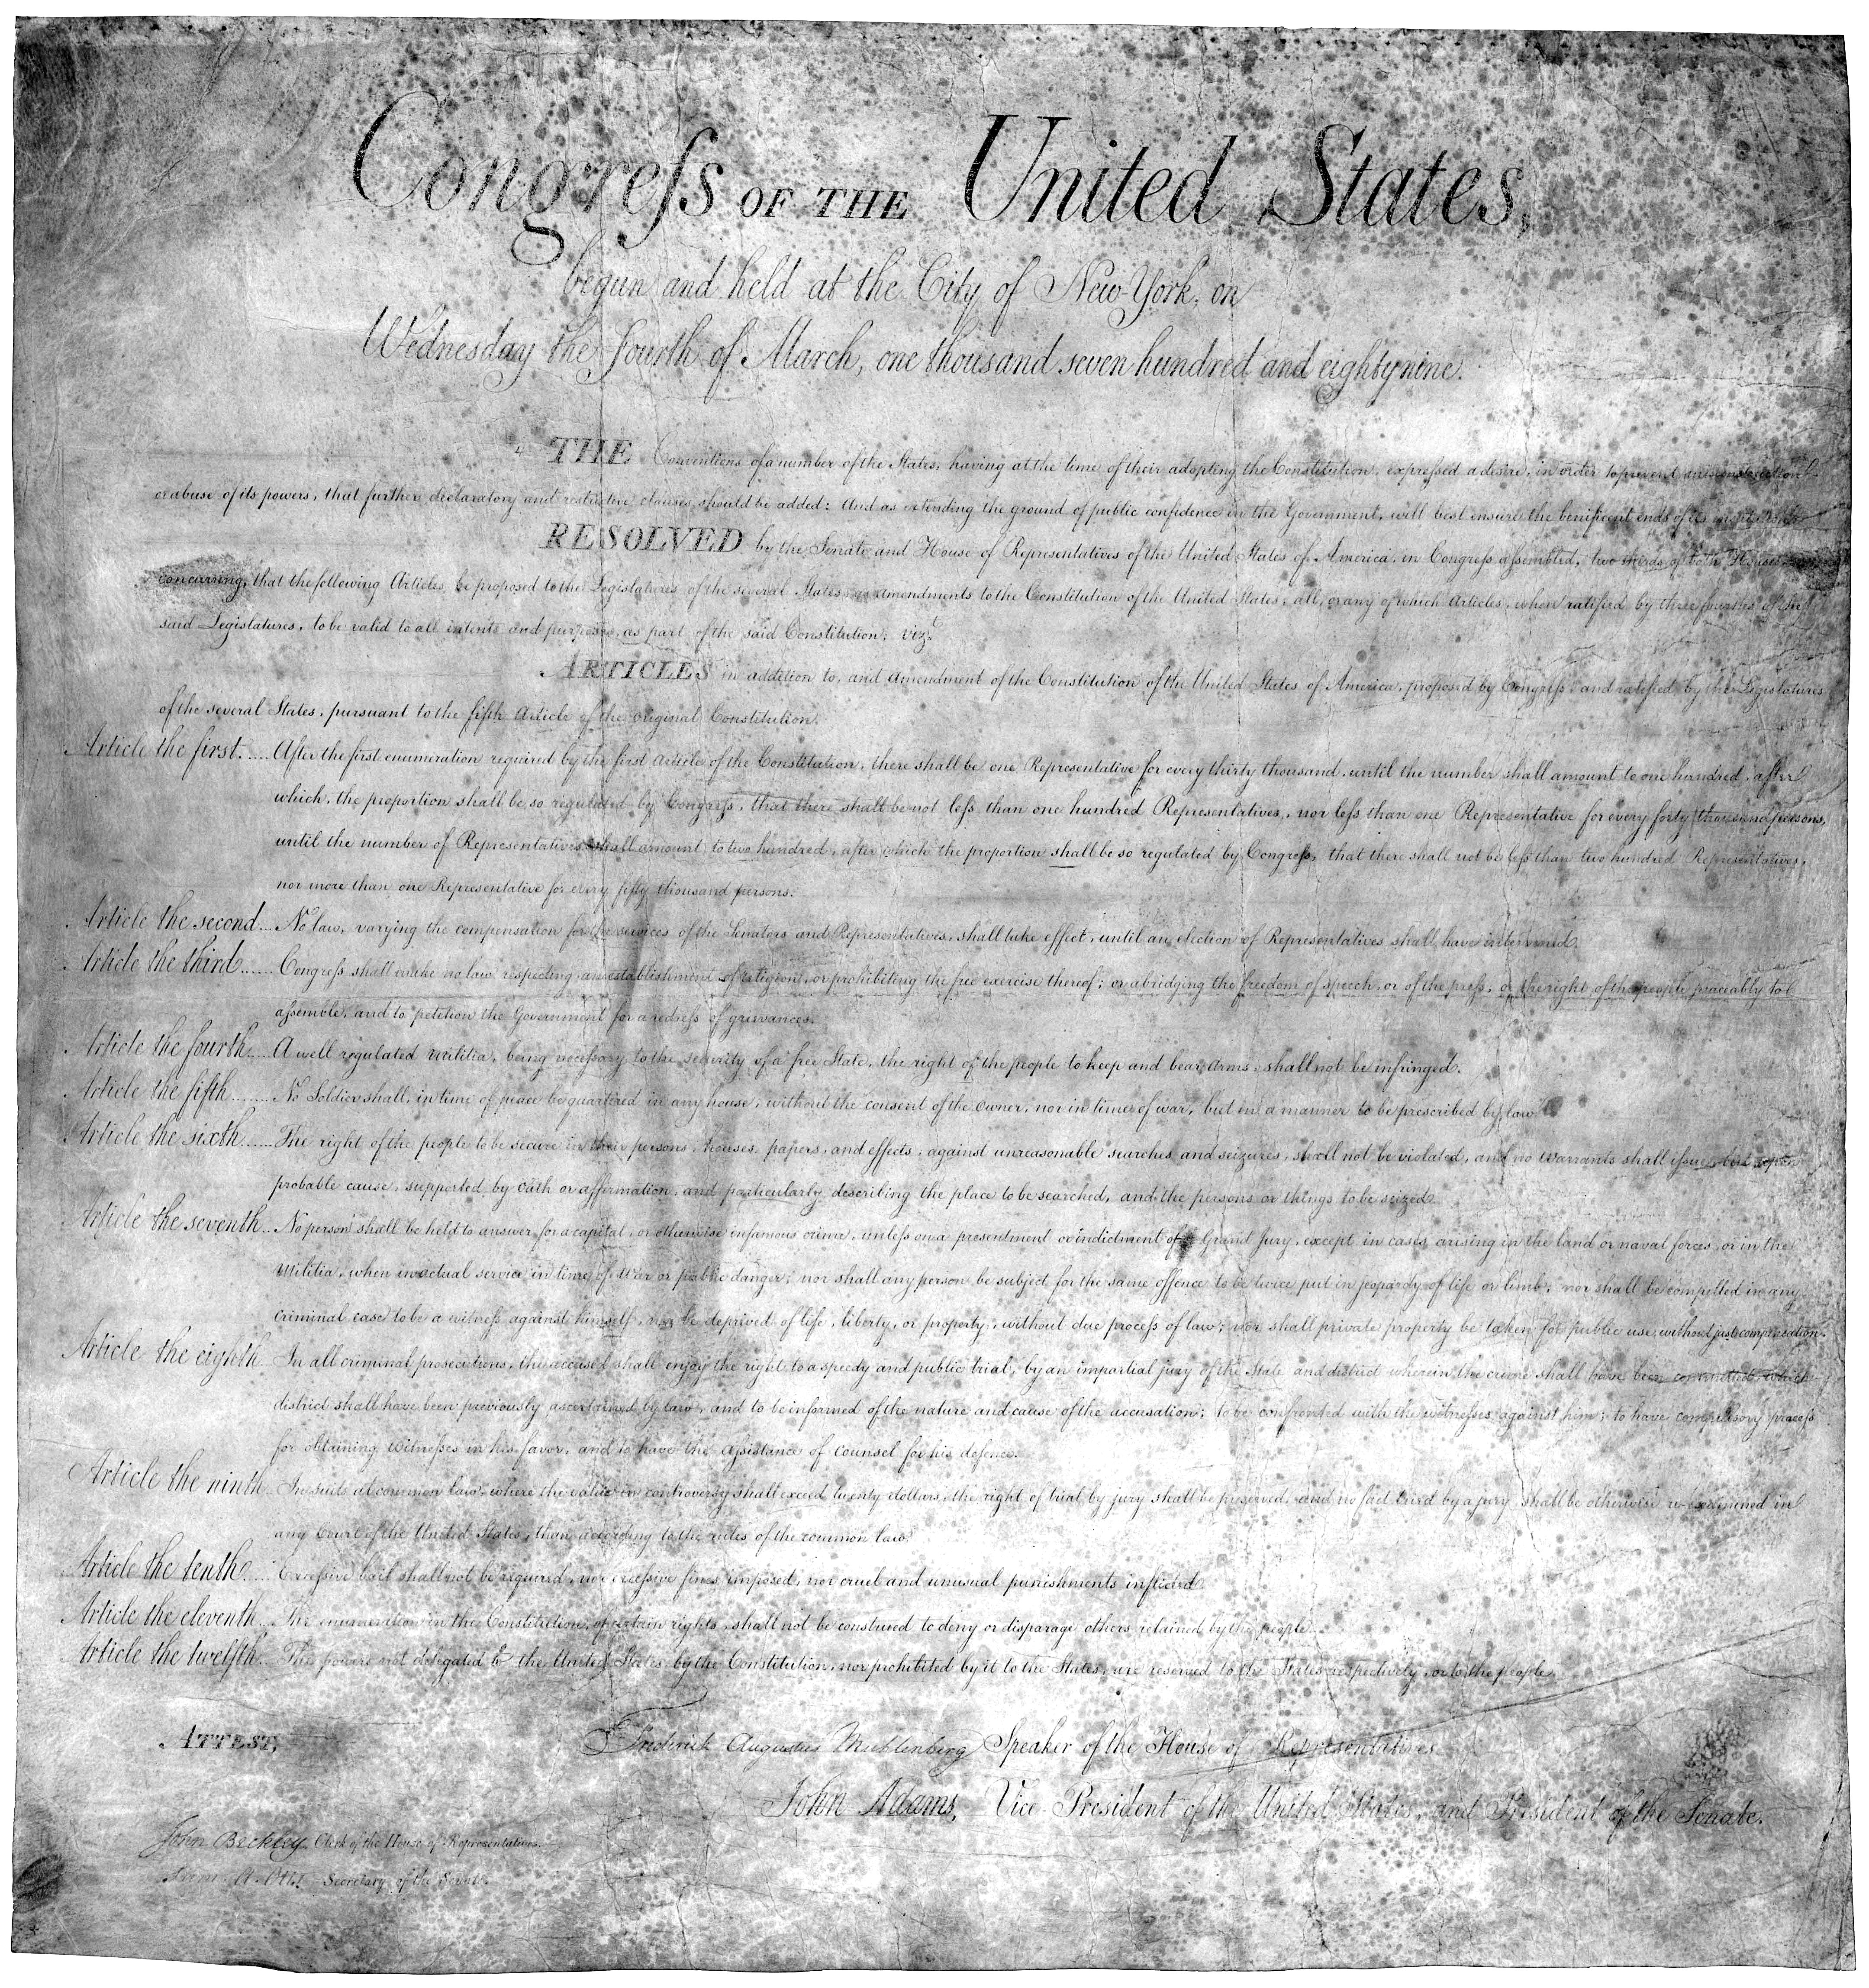 Congreſs OF THE United States,
begun and held at the City of New-York, on
Wednesday the fourth of March, one thousand seven hundred and eighty nine.
THE Conventions of a number of the States, having at the time of their adopting the Constitution, expreſsed a desire, in order to prevent misconstruction
or abuse of its powers, that further declaratory and restrictive clauses should be added: And as extending the ground of public confidence in the Government, will best ensure the benificent ends of its
RESOLVED by the Senate and House of Representatives of the United States of America, in Congreſs aſsembled, two thirds of both Houses
concurring, that the following Articles be proposed to the Legislatures of the several States, as amendments to the Constitution of the United States, all, or any of which Articles, when ratified by three fourths of the
said Legislatures, to be valid to all intents and purposes, as part of the said Constitution; vizt.
ARTICLES in addition to, and amendment of the Constitution of the United States of America, proposed by Congreſs, and ratified by the Legislatures
of the several States, pursuant to the fifth Article of the original Constitution.
Article the first..... After the first enumeration required by the first Article of the Constitution, there shall be one Representative for every thirty thousand, until the number shall amount to one hundred, after
which, the proportion shall be so regulated by Congreſs, that there shall be not leſs than one hundred Representatives, nor leſs than one Representative for every forty thousand persons,
until the number of Representatives shall amount to two hundred, after which the proportion shall be so regulated by Congreſs, that there shall not be leſs than two hundred Representatives,
nor more than one Representative for every fifty thousand persons.
Article the second... No law, varying the compensation for the services of the Senators and Representatives, shall take effect, until an election of Representatives shall have intervened.
Article the third...... Congreſs shall make no law respecting an establishment of religion, or prohibiting the free exercise thereof; or abridging the freedom of speech, or of the preſs, or the right of the people peaceably to
aſsemble, and to petition the Government for a redreſs of grievances.
Article the fourth..... A well regulated Militia, being neceſsary to the security of a free State, the right of the people to keep and bear Arms, shall not be infringed.
Article the fifth....... No Soldier shall, in time of peace be quartered in any house, without the consent of the Owner, nor in time of war, but in a manner to be prescribed by law.
Article the sixth...... The right of the people to be secure in their persons, houses, papers, and effects, against unreasonable searches and seizures, shall not be violated, and no Warrants shall iſsue, but upon
probable cause, supported by Oath or affirmation, and particularly describing the place to be searched, and the persons or things to be seized.
Article the seventh.. No person shall be held to answer for a capital, or otherwise infamous crime, unleſs on a presentment or indictment of a Grand Jury, except in cases arising in the land or naval forces, or in the
Militia, when in actual service in time of War or public danger; nor shall any person be subject for the same offence to be twice put in jeopardy of life or limb; nor shall be compelled in any
criminal case to be a witneſs against himself, nor be deprived of life, liberty, or property, without due proceſs of law; nor shall private property be taken for public use, without just compensation.
Article the eighth.. In all criminal prosecutions, the accused shall enjoy the right to a speedy and public trial, by an impartial jury of the State and district wherein the crime shall have been committed, which
district shall have been previously ascertained by law, and to be informed of the nature and cause of the accusation; to be confronted with the witneſses against him; to have compulsory proceſs
for obtaining witneſses in his favor, and to have the aſsistance of counsel for his defence.
Article the ninth.. In suits at common law, where the value in controversy shall exceed twenty dollars, the right of trial by jury shall be preserved, and no fact tried by a jury shall be otherwise re-examined in
any Court of the United States, than according to the rules of the common law.
Article the tenth.... Exceſsive bail shall not be required, nor exceſsive fines imposed, nor cruel and unusual punishments inflicted.
Article the eleventh... The enumeration in the Constitution, of certain rights, shall not be construed to deny or disparage others retained by the people.
Article the twelfth.. The powers not delegated to the United States by the Constitution, nor prohibited by it to the States, are reserved to the States respectively, or to the people.
ATTEST,
Frederick Augustus Muhlenberg Speaker of the House of Representatives
John Adams, Vice-President of the United States, and President of the Senate.
John Beckley, Clerk of the House of Representatives.
Sam. A. Otis Secretary of the Senate.